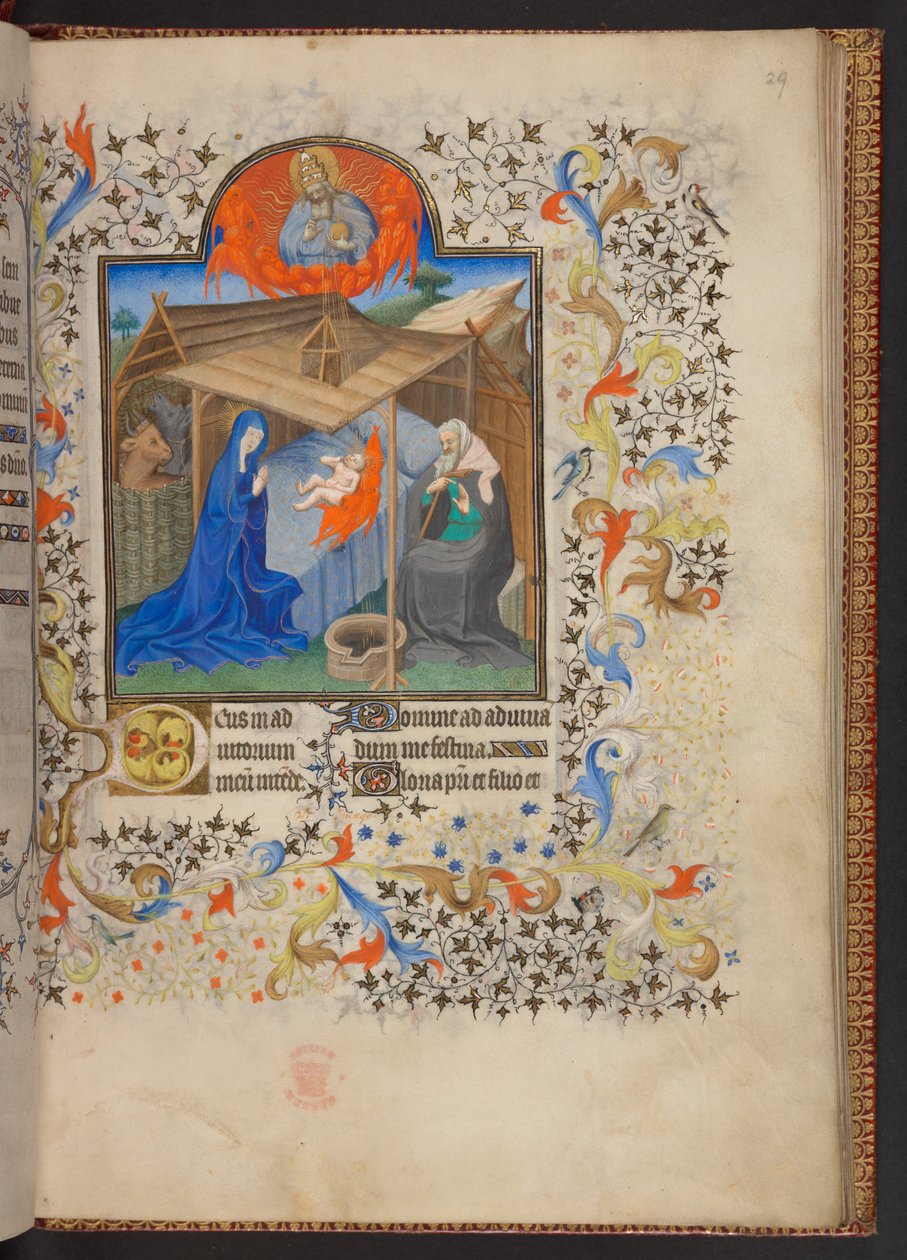 29
sem
ibus
Deus in ad
iutorium
meū intēde.
Domine ad adiuua
dum me festina.
Gloria pr̄i et filio et